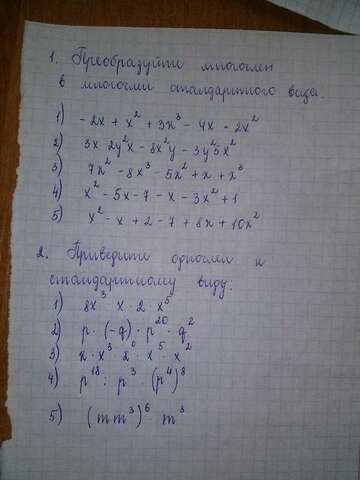 1. Преобразуйте многочлен
в многочлен стандартного вида.
1) -2x + x² + 3x³ - 4x - 2x²
2) 3x · 2y²x - 8x²y - 3y²5x²
3) 7x² - 8x³ - 5x² + x + x³
4) x² - 5x - 7 - x - 3x² + 1
5) x² - x + 2 - 7 + 8x + 10x²
2. Приведите одночлен к
стандартному виду:
1) 8x³ · x · 2 x⁵
2) p · (-q) · p²⁰ · q²
3) x · x³ · 2⁰ · x⁵ · x²
4) p¹⁸ : p³ · (p⁴)⁸
5) (m m³)⁶ · m³